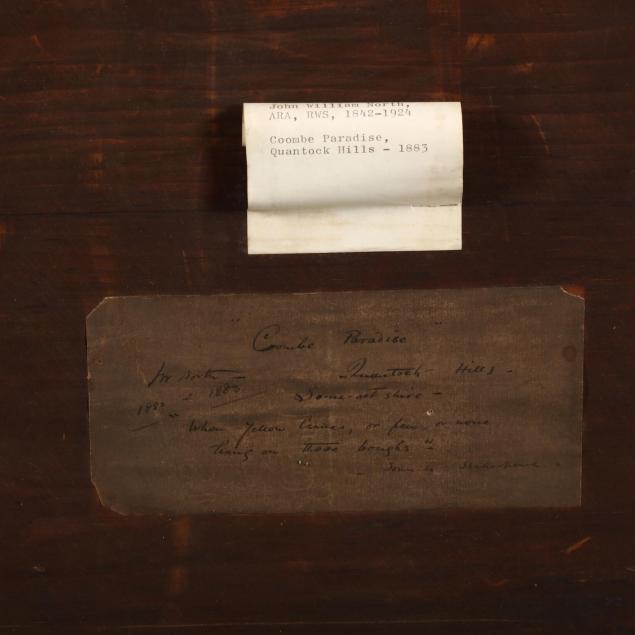 John William North,
ARA, RWS, 1842-1924
Coombe Paradise,
Quantock Hills - 1883
"Coombe Paradise"
JW North - Quantock Hills -
1883 Somersetshire -
"When Yellow leaves, or few, or none
hang on those boughs"
- Shakespeare.